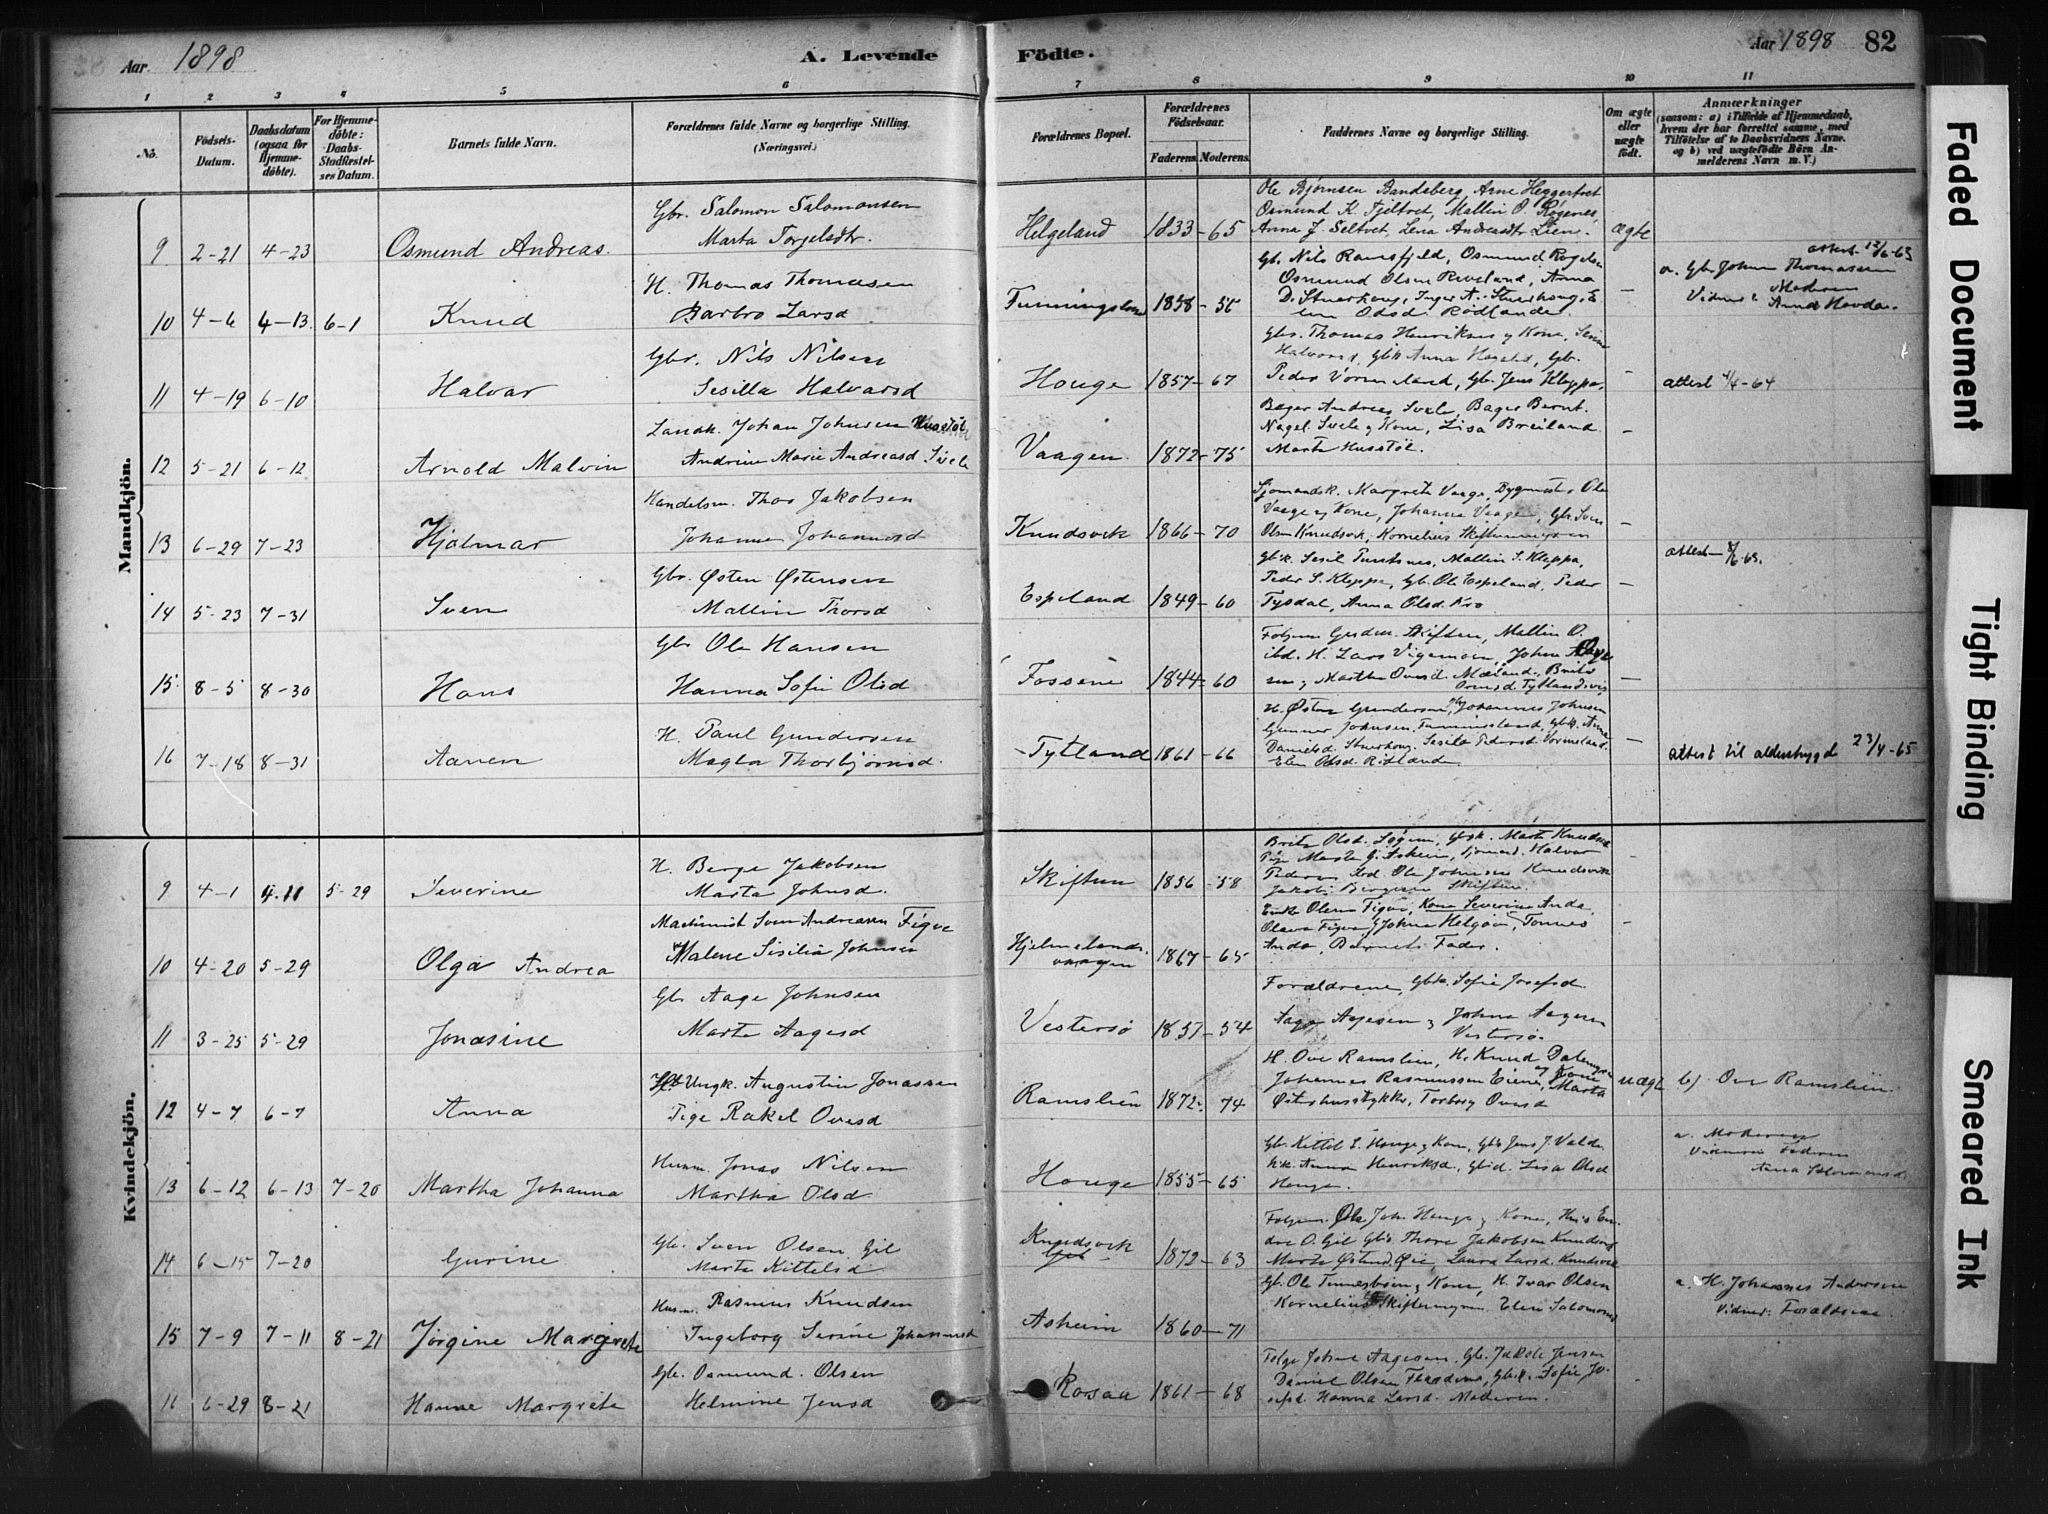 Aar. 1898
A. Levende Födte.
Aar 1898 82
1 2 3 4 5 6 7 8 9 10 11
No.
Födsels-Datum.
Daabsdatum (ogsaa for Hjemme-döbte).
For Hjemme-döbte: Daabs-Stadfæstel-ses Datum.
Barnets fulde Navn.
Forældrenes fulde Navne og borgerlige Stilling. (Næringsvei.)
Forældrenes Bopæl.
Forældrenes Födselsaar.
Faderens. Moderens.
Faddernes Navne og borgerlige Stilling.
Om ægte eller uægte födt.
Anmærkninger
(saasom: a) i Tilfælde af Hjemmedaab, hvem der har forrettet samme, med Tilföielse af to Daabsvidners Navne. og b) ved uægtefödte Börn An-melderens Navn m. V.)
Mandkjön.
9 2-21 4-23 Osmund Andreas.
Gbr. Salomon Salomonsen
Marta Torgelsdtr.
Helgeland 1833-65
Ole Bjørnsen Bandsberg, Arne Heggertvet
Osmund K. Fjeltvet, Mallin O. Røgenes,
Anna J. Seltvet, Lena Andreasdtr Lien.
ægte
10 4-6 4-13. 6-1 Knud
H. Thomas Thomasen
Barbro Larsd
1858-56
Gb. Nils Ramsfjeld, Osmund
Osmund Olsen Riveland, Anna
Odsd. Rødland.
-
attest 12/6-63
a. Gb. Johan Thomassen
Vidner: Moderen
Anna Hovda.
11 4-19 6-10 Halvar
Gbr. Nils Nilsen
Sesilla Halvarsd
Houge 1857-67
Gbr. Thomas Henriksen og Kone,
Halvorsd, Gbk Anna, Gb.
Peder Vormeland, Gb. Jens Kleppa,
-
attest 4/4-64
12 5-21 6-12 Arnold Malvin
Landh. Johan Johnsen Husstøl
Andrine Marie Andreasd Svele
Vaagen. 1872-75
Bager Andreas Svele, Bager Bernt.
Nagel Svele og Kone, Lisa Breiland
Marta Husstøl.
-
13 6-29 7-23 Hjalmar
Handelsm. Thor Jakobsen
Johanne Johannesd
Knudsvik 1866-70
Sjømandsk. Margrete Vaage, Bygmester Ole
Vaage og Kone, Johanna Vaage, Gb. Sven
Olsen Knudsvik, Kornelius Skiftenmyren
-
attest 8/6-63.
14 5-23 7-31 Sven
Gbr. Østen Østensen
Mallin Thorsd
Espeland 1849-60
Gbk. Sesil, Mallin S. Kleppa,
Peder S. Kleppa, Gb. Ole Espeland, Peder
Tysdal, Anna Olsd. Kro
-
15. 8-5 8-30 Hans
Gbr Ole Hansen
Hanna Sofie Olsd
Fossene 1844-60
Skiften, Mallin O.
ibd. H. Lars Vigemoen, John
og Martha Ovesd. Mæland.
-
16 7-18 8-31 Aanen
H. Paul Gundersen
Magla Thorbjørnsd.
Tytland 1861-66
H. Østen Gundersen, Johannes Johnsen
Gunnar Johnsen, Gbk. Anna
Danielsd. Sesilie Pedersd Vormeland.
Elen Odsd. Rødland
-
attest til alderstrygd 23/4-65
Kvindekjön.
9 4-1 4-11 5-29 Severine
H. Berge Jakobsen
Marta Johnsd.
Skiftun 1856-58
Brita Olsd. Marta Knudsen
Pige Marta G. Askvin, Halvar
Ole Johnsen Knudsvik
Jakob Bergesen Skiften.
-
10 4-20 5-29 Olga Andrea
Maskinist Sven Andreasen Figve
Malene Sisilia Johnsen
Hjelmelands-
vaagen 1867-65
Enke Olena Figve, Kone Severine Anda,
Olava Figve, Johna Helgøen, Tønnes
Anda, Barnets Fader.
-
11 3-25 5-29 Jonasine
Gb Aage Johnsen
Marta Aagesd
Vestersø 1857-54
Forældrene, Gbk. Sofie Josefsd
Aage Agesen og Johna Aagesen
Vestersø.
12 4-7 6-7 Anna
Ungk. Augustin Jonassen
Pige Rakel Ovesd
Ramslien 1872- 74
H. Ove Ramslien, H. Knud Dalemyren
og Kone
Johannes Rasmussen Eiene, Marta
Østerhusstykke, Torborg Ovesd
uægte
b) Ove Ramsliin
13 6-12 6-13 7-20 Martha Johanna
Husm. Jonas Nilsen
Martha Olsd
Houge 1855-65
Gb. Kittel S. Houge og Kone, Gb. Jens J. Valde
Anna Henriksd, Lisa Olsd
Houge.
a. Moderen
Vidner: Faderen
Anna Salomonsd.
14 6-15 7-20 Gurine
Gb. Sven Olsen Gil
Marta Kittelsd
Knudsvik 1872-63
Ole Joh. Houge og Kone,
O. Gil Gb. Thore Jakobsen Knudsvig
Marta, Laura Larsd. Knudsvik
15 7-9 7-11 8-21 Jørgine Margrete
Husm. Rasmus Knudsen
Ingeborg Serine Johannesd
Asheim 1860-71
Gb. Ole og Kone, H. Ivar Olsen
Kornelius Skiftenmyren. Elen Salomonsd
a. H. Johannes Andersen
Vidner: Forældrene
16 6-29 8-21 Hanne Margrete
Gb. Osmund Olsen
Helmine Jensd
Rosaa 1861-68
John Aagesen, Gb. Jakob Jensen
Daniel Olsen, Gbk. Sofie Jo-
sefsd. Hanna Larsd. Moderen.
Faded Document
Tight Binding
Smeared Ink